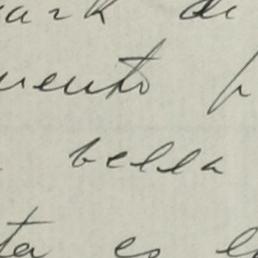 ark di
mento p
bella
ta es